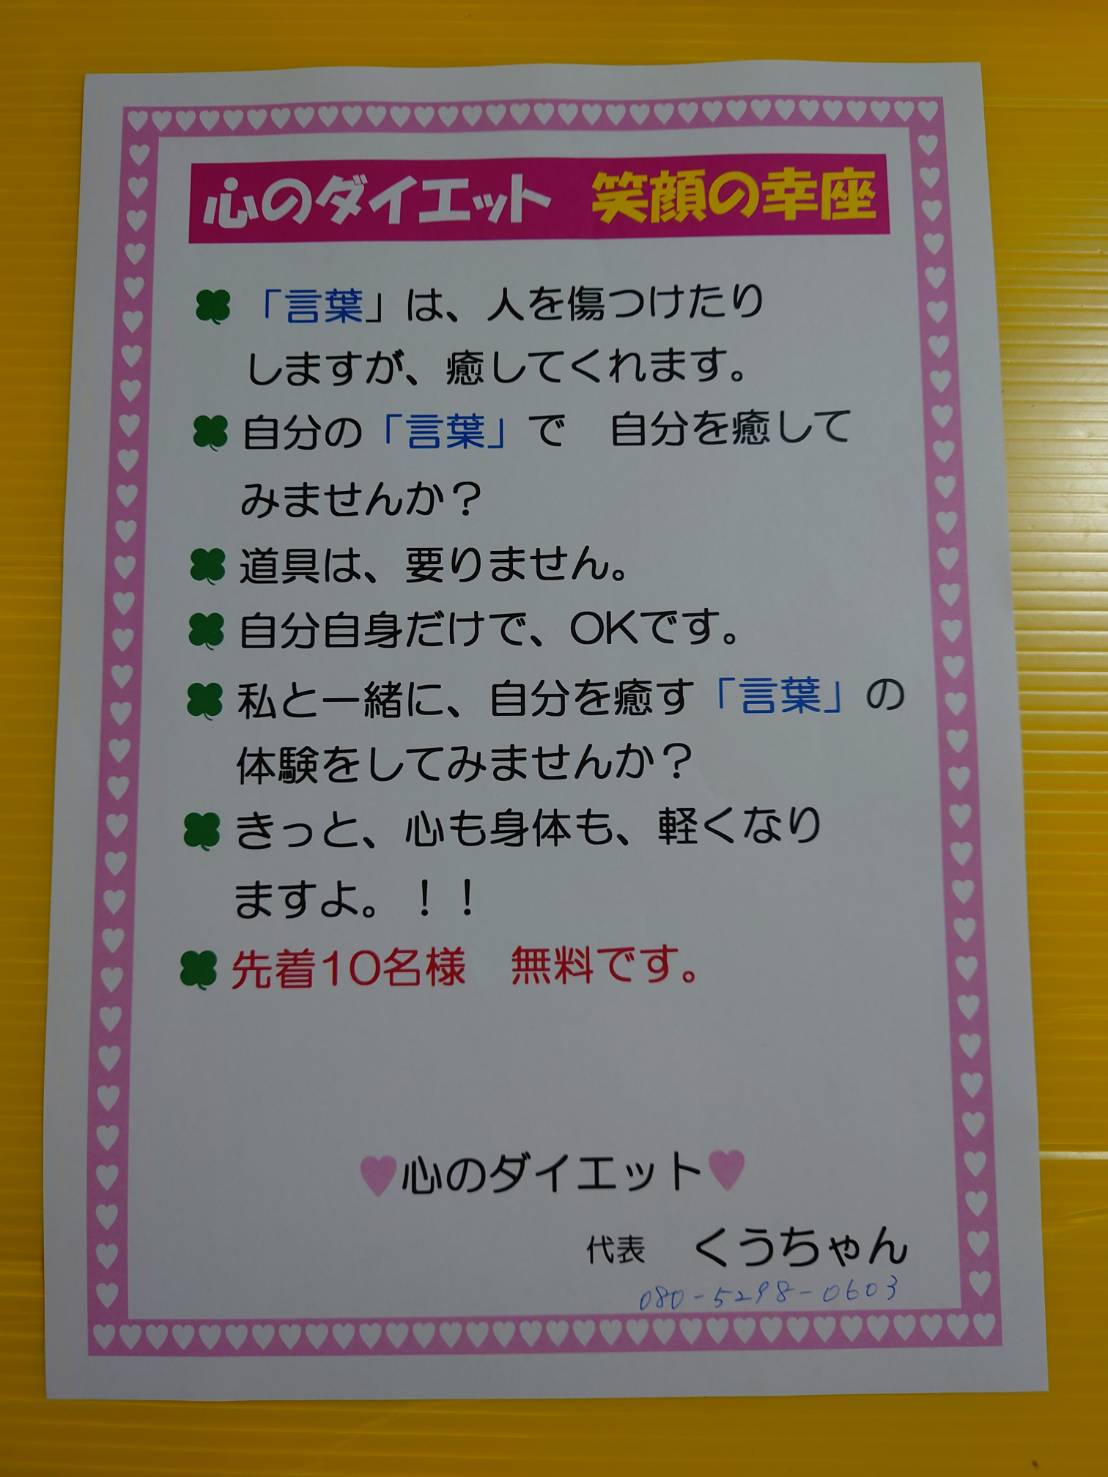 心のダイエット　笑顔の幸座
「言葉」は、人を傷つけたり
しますが、癒してくれます。
自分の「言葉」で　自分を癒して
みませんか？
道具は、要りません。
自分自身だけで、OKです。
私と一緒に、自分を癒す「言葉」の
体験をしてみませんか？
きっと、心も身体も、軽くなり
ますよ。！！
先着10名様　無料です。
心のダイエット
代表　くうちゃん
080-5298-0603